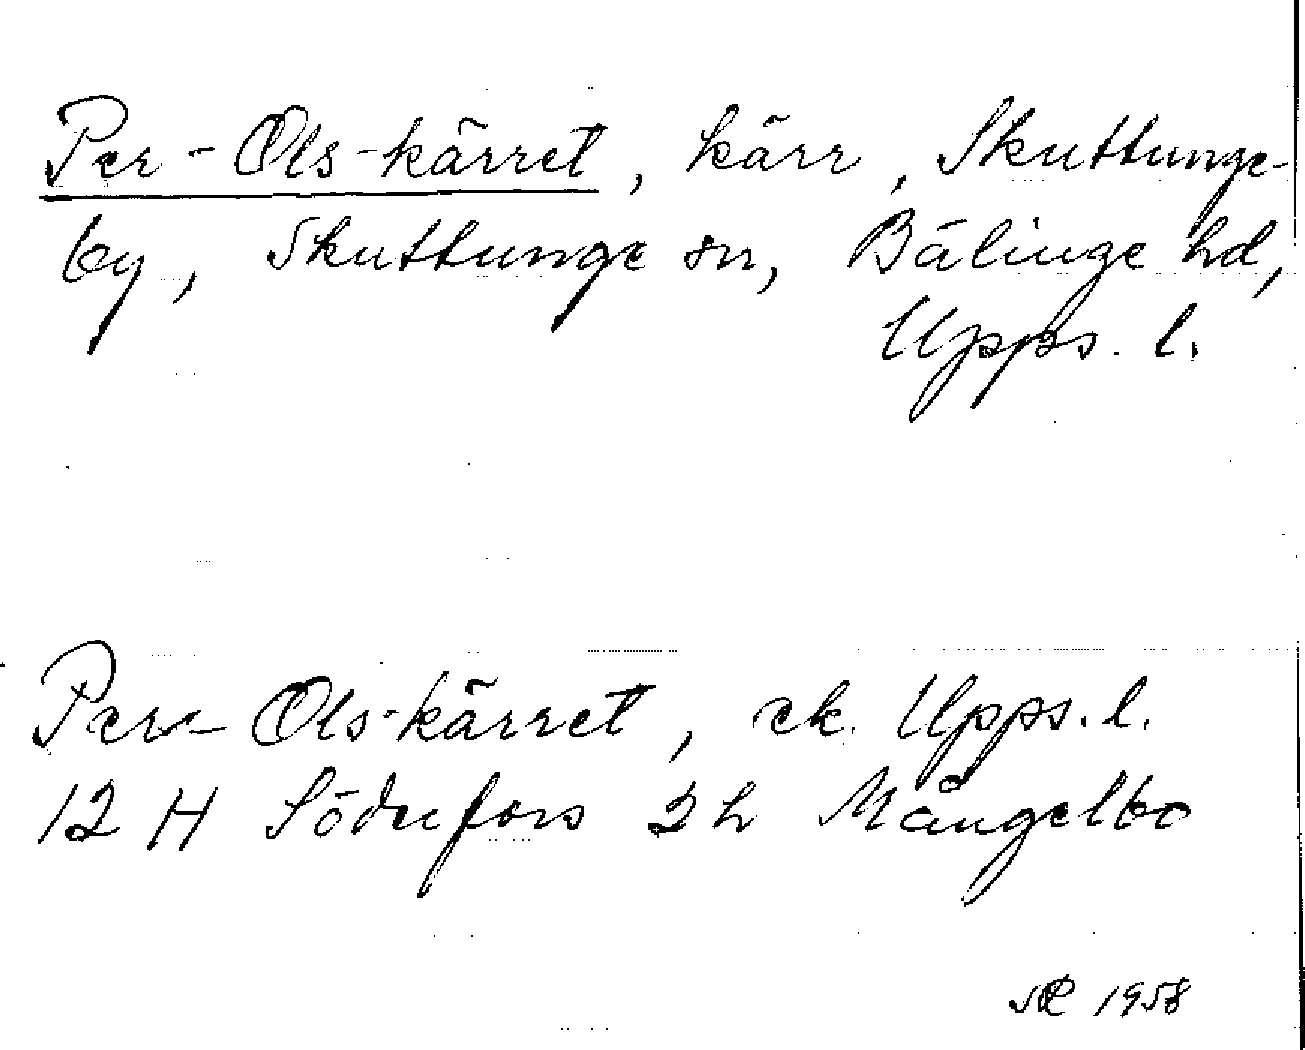 Per-Ols-kärret, kärr, Skuttunge-
by, Skuttunge sn, Bälinge hd,
Upps. l.
Per-Ols-kärret, ek. Upps. l.
12 H Söderfors 2h Mångelbo
1958